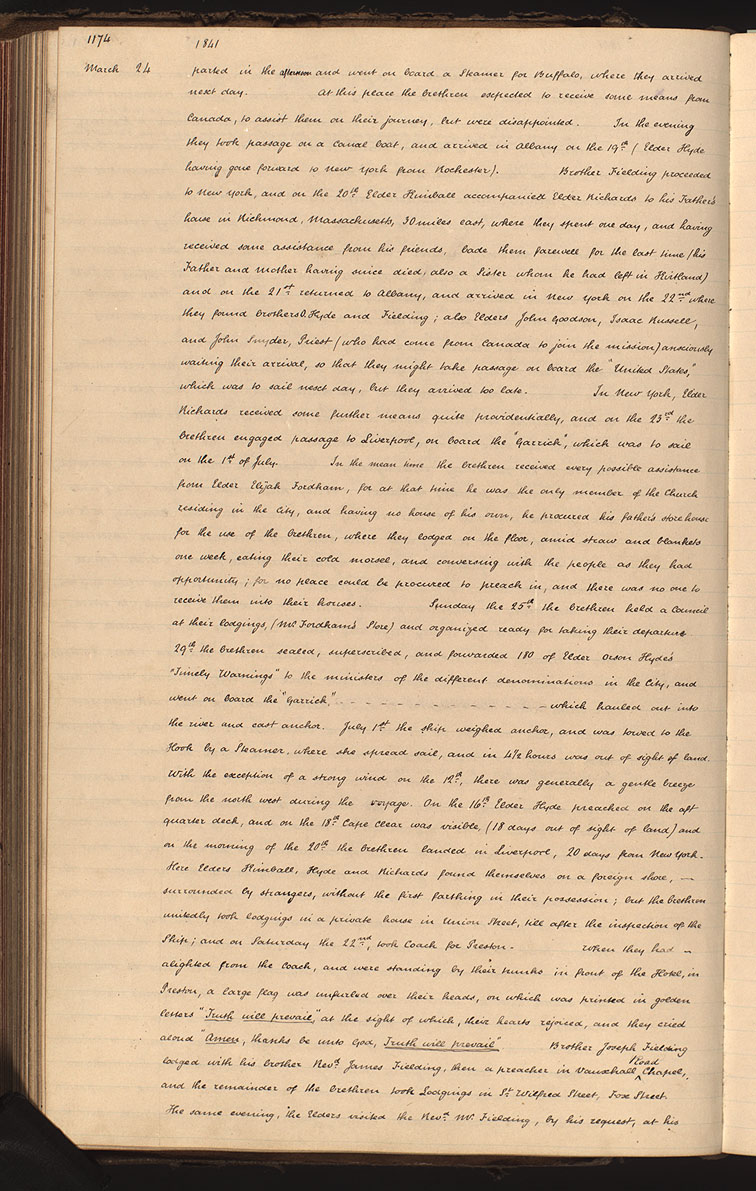 1174 1841
March 24 parted in the afternoon and went on board a Steamer for Buffalo, where they arrived
next day. At this place the brethren expected to receive some means from
Canada, to assist them on their journey, but were disappointed. In the evening
they took passage on a Canal boat, and arrived in Albany on the 19th. (Elder Hyde
having gone forward to New York from Rochester). Brother Fielding proceeded
to New York, and on the 20th. Elder Kimball accompanied Elder Richards to his Father's
house in Richmond, Massachusetts, 30 miles east, where they spent one day, and having
received some assistance from his friends, bade them farewell for the last time (his
Father and mother having since died, also a Sister whom he had left in Kirtland)
and on the 21st. returned to Albany, and arrived in New York on the 22nd. where
they found brothers O. Hyde and Fielding; also Elders John Goodson, Isaac Russell,
and John Snyder, Priest (who had come from Canada to join the mission) anxiously
waiting their arrival, so that they might take passage on board the "United States,"
which was to sail next day, but they arrived too late. In New York, Elder
Richards received some further means quite providentially, and on the 23rd. the
brethren engaged passage to Liverpool, on board the "Garrick", which was to sail
on the 1st. of July. In the mean time the brethren received every possible assistance
from Elder Elijah Fordham, for at that time he was the only member of the Church
residing in the City, and having no house of his own, he procured his father's storehouse
for the use of the brethren, where they lodged on the floor, amid straw and blankets
one week, eating their cold morsel, and conversing with the people as they had
opportunity; for no place could be procured to preach in, and there was no one to
receive them into their houses. Sunday the 25th. the brethren held a Council
at their lodgings, (Mr. Fordham's Store) and organized ready for taking their departure
29th. the brethren sealed, superscribed, and forwarded 180 of Elder Orson Hyde's
"Timely Warnings" to the ministers of the different denominations in the City, and
went on board the "Garrick," - - - - - - - - - - - - - - which hauled out into
the river and cast anchor. July 1st. the ship weighed anchor, and was towed to the
Hook by a Steamer, where she spread sail, and in 4½ hours was out of sight of land.
With the exception of a strong wind on the 12th., there was generally a gentle breeze
from the north west during the voyage. On the 16th. Elder Hyde preached on the aft
quarter deck, and on the 18th. Cape Clear was visible, (18 days out of sight of land) and
on the morning of the 20th. the brethren landed in Liverpool, 20 days from New York.
Here Elders Kimball, Hyde and Richards found themselves on a foreign shore, —
surrounded by strangers, without the first farthing in their possession; but the brethren
unitedly took lodgings in a private house in Union Street, till after the inspection of the
Ship; and on Saturday the 22nd., took Coach for Preston. When they had —
alighted from the Coach, and were standing by their trunks in front of the Hotel, in
Preston, a large flag was unfurled over their heads, on which was printed in golden
letters "Truth will prevail," at the sight of which, their hearts rejoiced, and they cried
aloud "Amen, thanks be unto God, Truth will prevail" Brother Joseph Fielding
lodged with his brother Revd. James Fielding, then a preacher in Vauxhall Road Chapel,
and the remainder of the brethren took Lodgings in St. Wilfred Street, Fox Street.
The same evening, the Elders visited the Revd. Mr. Fielding, by his request, at his